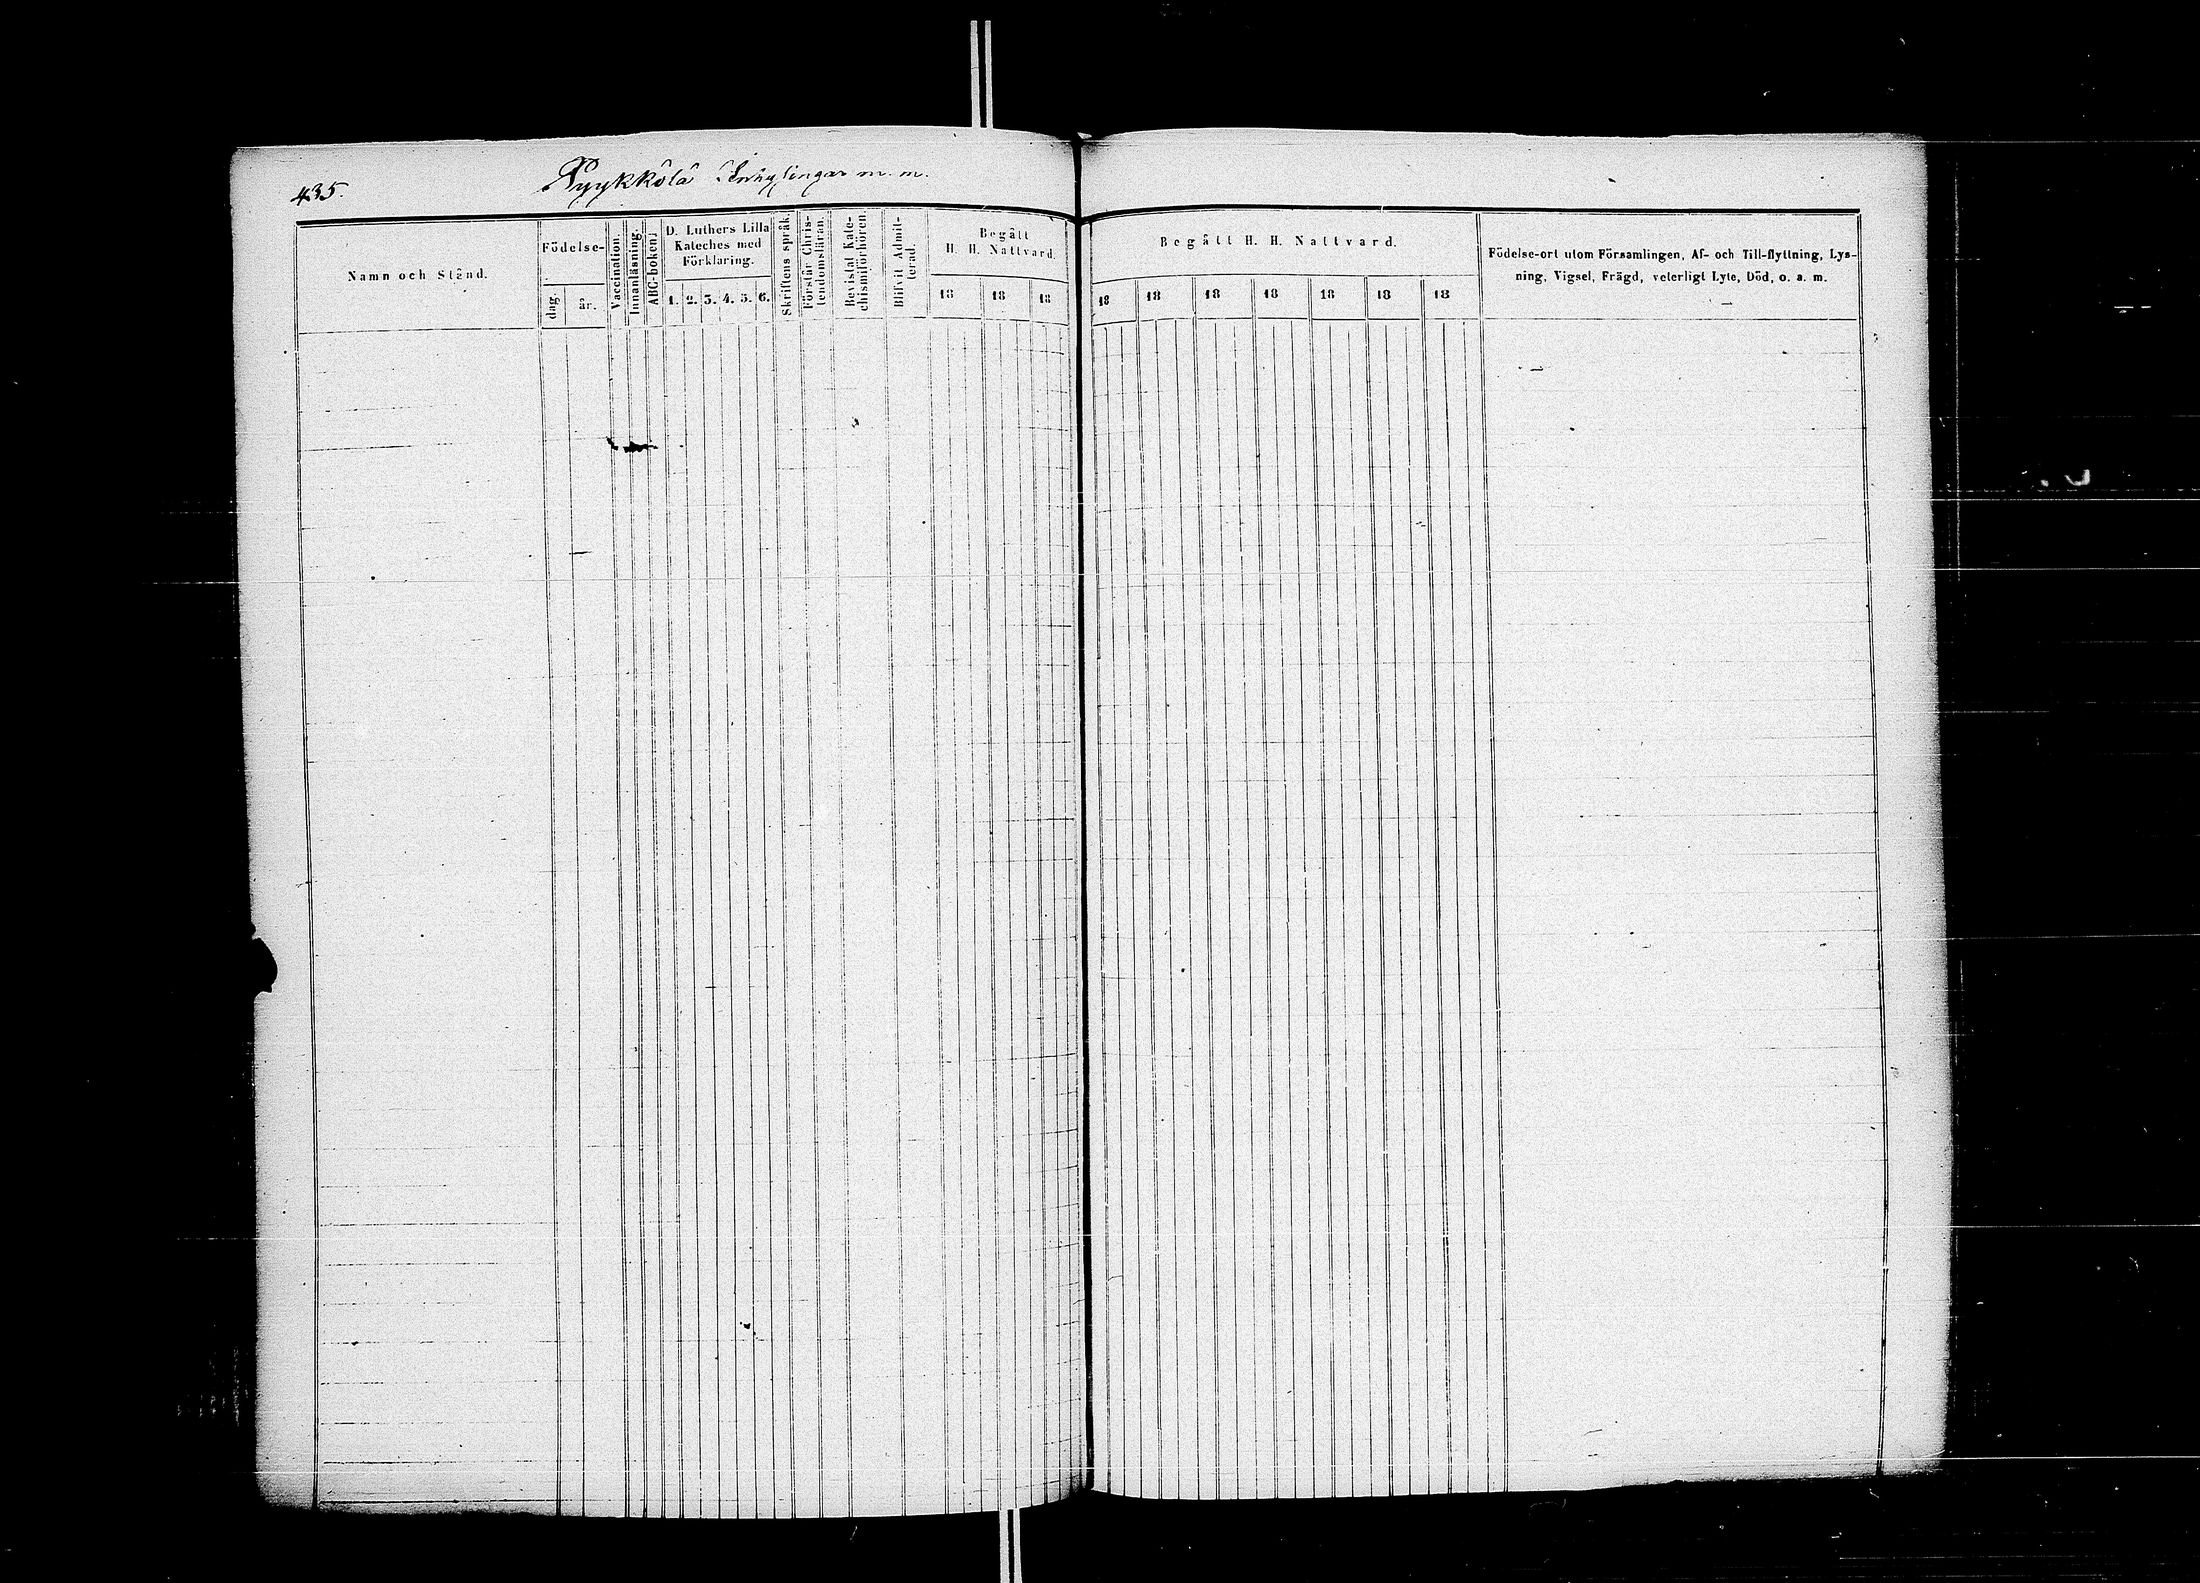 435.
Pyykkölä Inhysingar m. m.
Namn och Stånd.
Födelse-
dag.
år.
Vaccination.
Innanläsning.
ABC-boken.
D. Luthers Lilla
Kateches med
Förklaring.
1. 2. 3. 4. 5. 6.
Skriftens språk.
Förstår Chris-
tendomsläran.
Bevistat Kate-
chismiförhören.
Blifvit Admit-
terad.
Begått
H. H. Nattvard.
18 18 18
Begått H. H. Nattvard.
18 18 18 18 18 18 18
Födelse-ort utom Församlingen, Af- och Till-flyttning, Lys-
ning, Vigsel, Frägd, veterligt Lyte, Död, o. a. m.